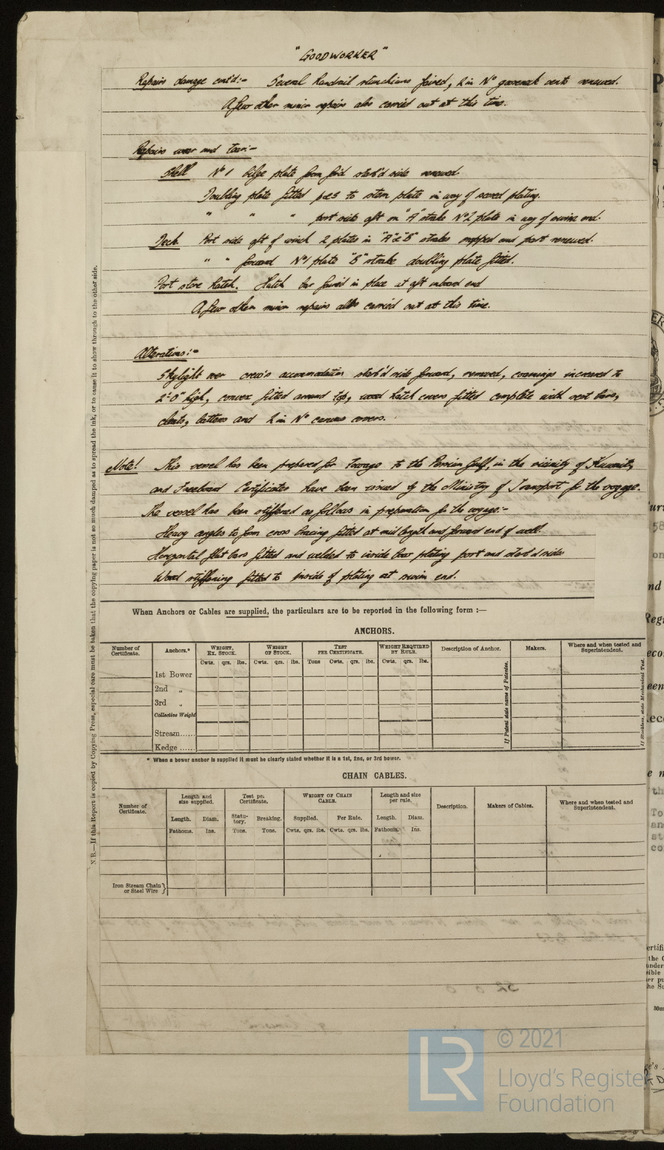 "GOODWORKER"
Repairs damage contd:- Several handrail stanchions faired, 2 in Nº gooseneck vents renewed.
A few other minor repairs also carried out at this time.
Repairs wear and tear:-
Shell Nº 1 bilge plate from for'd starb'd side renewed.
Doubling plate fitted p&s to stern plate in way of scored plating.
" " " port side aft on "A" strake Nº 2 plate in way of swim end.
Deck Port side aft of winch 2 plates in "A" & "B" strakes cropped and part renewed.
" " forward Nº 1 plate "B" strake doubling plate fitted.
Port store hatch. Hatch bar faired in place at aft inboard end
A few other minor repairs also carried out at this time.
Alterations:-
Skylight over crew's accommodation starb'd side forward, removed, coamings increased to
2'-0" high, fitted around top, wood hatch covers fitted complete with
cleats, battens and 2 in Nº canvas covers.
Note! This vessel has been prepared for Towage to the Persian Gulf, in the vicinity of Kuwait,
and Freeboard Certificates have been issued by the Ministry of Transport for the voyage.
The vessel has been stiffened as follows in preparation for the voyage:-
Heavy angles to form cross bracing fitted at mid length and forward end of well.
Horizontal flat bars fitted and welded to inside plating port and starb'd side
Wood stiffening fitted to inside of plating at swim end.
When Anchors or Cables are supplied, the particulars are to be reported in the following form :—
ANCHORS.
Number of Certificate. Anchors.* WEIGHT, EX. STOCK. WEIGHT OF STOCK. TEST PER CERTIFICATE. WEIGHT REQUIRED BY RULE. Description of Anchor. Makers. Where and when tested and Superintendent.
Cwts. qrs. lbs. Cwts. qrs. lbs. Tons Cwt. qrs. lbs. Cwts. qrs. lbs.
1st Bower
2nd „
3rd „
Collective Weight
Stream
Kedge
If Patent state name of Patentee.
* When a bower anchor is supplied it must be clearly stated whether it is a 1st, 2nd, or 3rd bower.
CHAIN CABLES.
Number of Certificate. Length and size supplied. Test per Certificate. WEIGHT OF CHAIN CABLE. Length and size per rule. Description. Makers of Cables. Where and when tested and Superintendent.
Length. Diam. Statutory. Breaking. Supplied. Per Rule. Length. Diam.
Fathoms. Ins. Tons. Tons. Cwts. qrs. lbs. Cwts. qrs. lbs. Fathoms. Ins.
Iron Stream Chain or Steel Wire
N.B.—If this Report is copied by Copying Press, especial care must be taken that the copying paper is not so much damped as to spread the ink, or to cause it to show through to the other side.
LR
© 2021
Lloyd's Register
Foundation